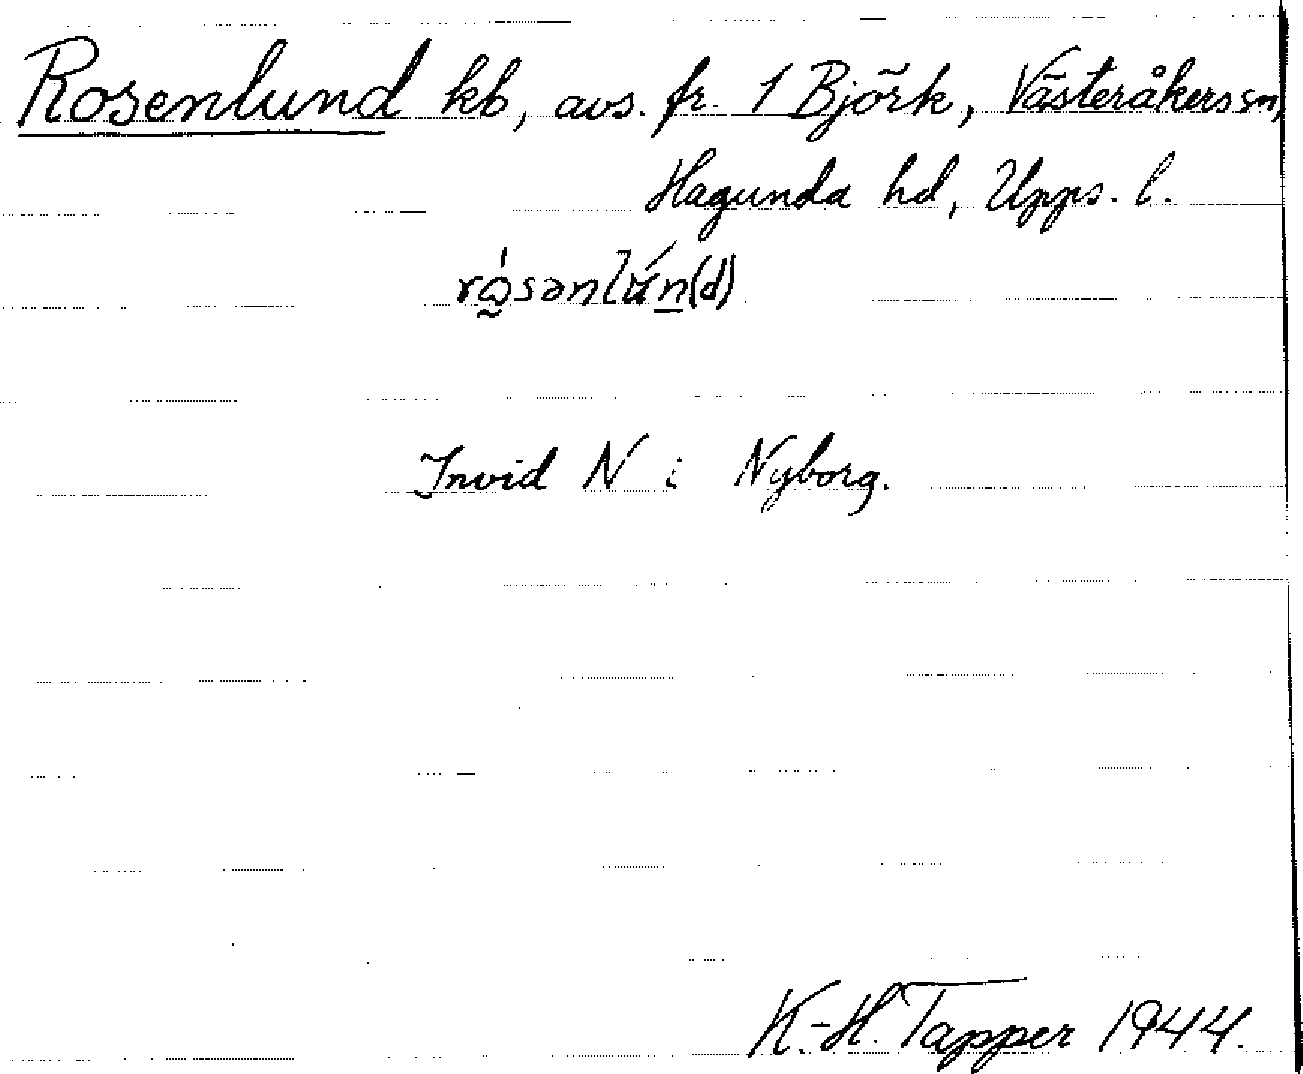 Rosenlund kb, avs. fr. 1 Björk, Västeråkers sn,
Hagunda hd, Upps. l.
Invid N i Nyborg.
K.-H. Tapper 1944.